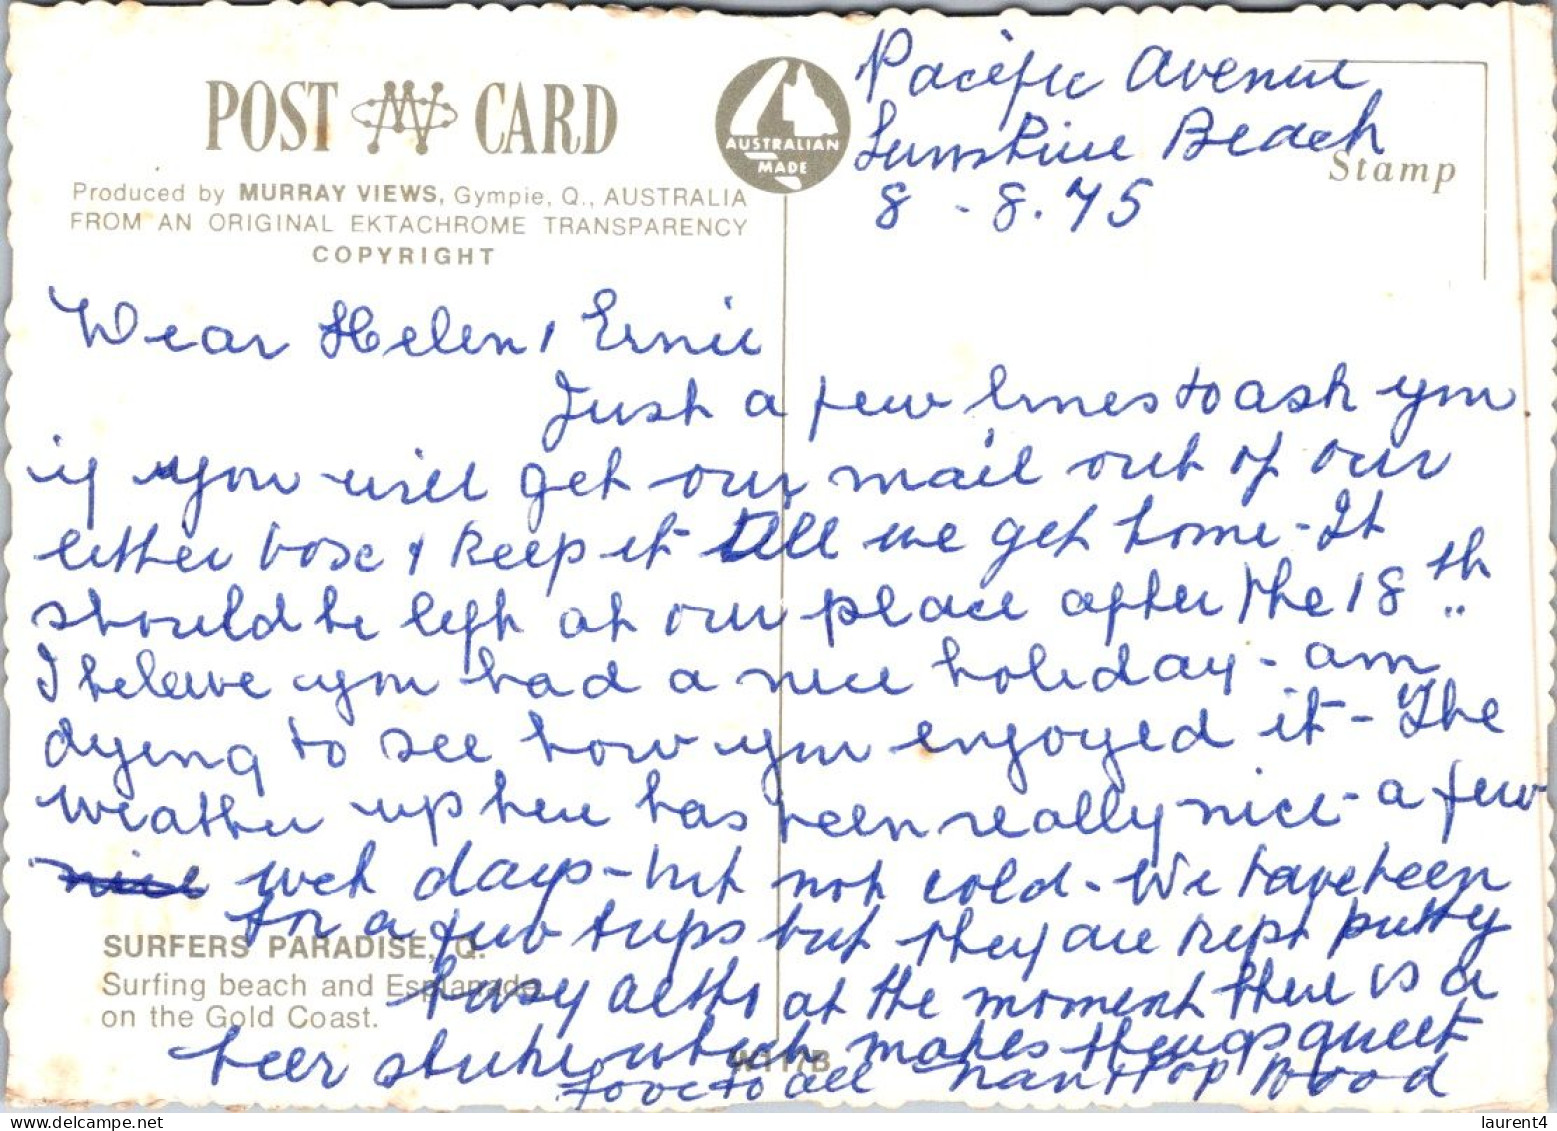 POST CARD
Produced by MURRAY VIEWS, Gympie, Q., AUSTRALIA
FROM AN ORIGINAL EKTACHROME TRANSPARENCY
COPYRIGHT
AUSTRALIAN
MADE
Stamp
Pacific Avenue
Sunshine Beach
8 - 8.75
Dear Helen, Ernie
Just a few lines to ask you
if you will get our mail out of our
letter box & keep it till we get home - It
should be left at our place after the 18th
I beleive you had a nice holiday - am
dying to see how you enjoyed it - The
weather up here has been really nice - a few
nice wet days - but not cold - We have been
for a few trips but they are kept pretty
busy altho at the moment there is a
beer strike which makes things quiet
Love to all Nan & Pop Wood
SURFERS PARADISE, Q.
Surfing beach and Esplanade
on the Gold Coast.
W117B
laurent4